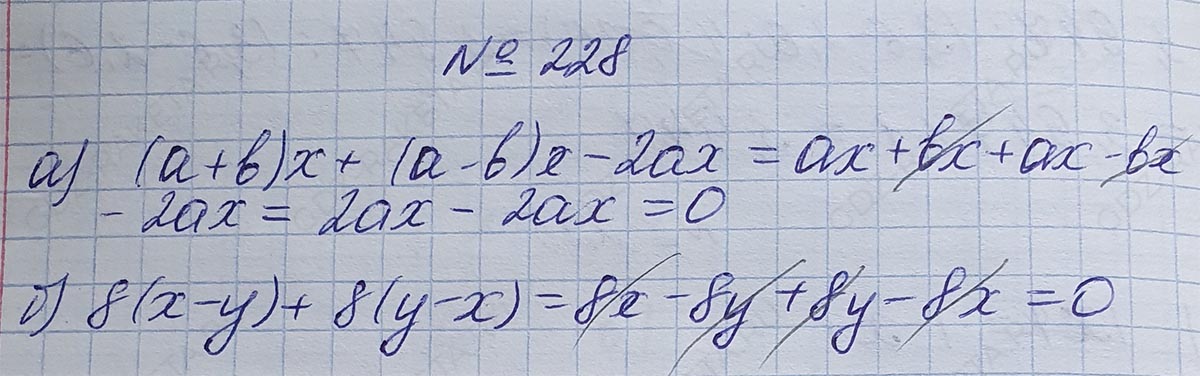 № 228
а) (a+b)x + (a-b)x - 2ax = ax + bx + ax - bx
- 2ax = 2ax - 2ax = 0
б) 8(x-y) + 8(y-x) = 8x - 8y + 8y - 8x = 0